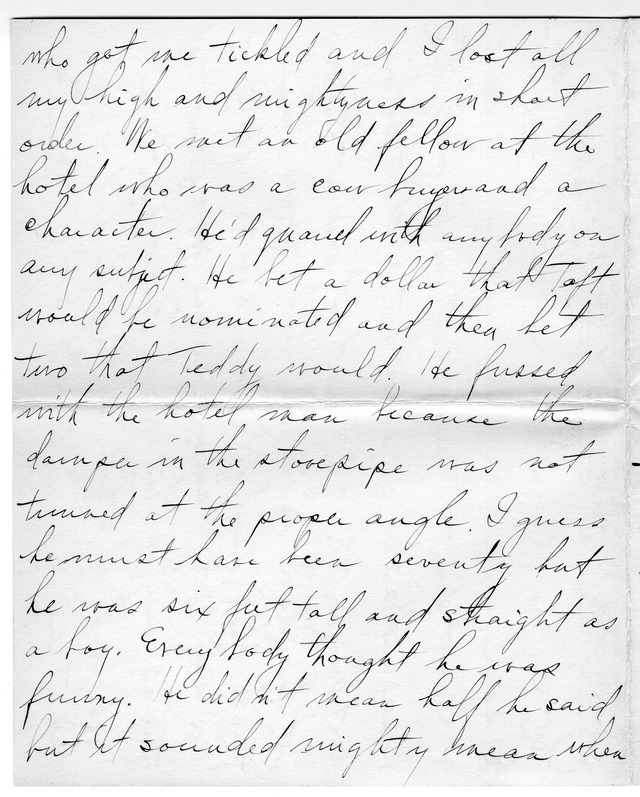 who got me tickled and I lost all
my high and mightyness in short
order. We met an old fellow at the
hotel who was a cow buyer and a
character. He'd quarrel with anybody on
any subject. He bet a dollar that Taft
would be nominated and then bet
two that Teddy would. He fussed
with the hotel man because the
damper in the stovepipe was not
turned at the proper angle. I guess
he must have been seventy but
he was six feet tall and straight as
a boy. Every body thought he was
funny. He didn't mean half he said
but it sounded mighty mean when